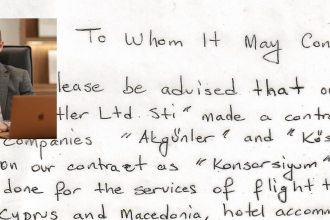 To Whom It May Con
lease be advised that o
tler Ltd. Sti" made a contr
companies "Akgünler" and "Kös
on our contract as "Konsorsiyum
done for the services of flight t
Cyprus and Macedonia, hotel accom